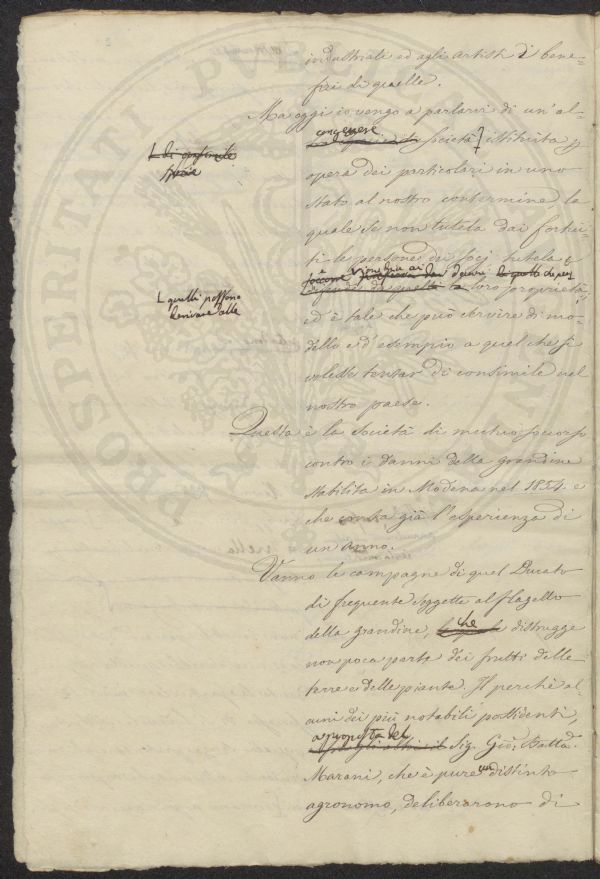 industriale ed agli artisti di bene-
fizi di quelle.
Ma oggi io vengo a parlarvi di un'al-
congenere
Società istituita p
L di consimile
specie
opera dei particolari in uno
stato al nostro contermine, la
quale se non tutela dai fortui-
ti le persone dei socj tutela e
soccorre
L quelli possono
derivare alle
loro proprietà,
ed è tale che può servire di mo-
dello e d'esempio a quel che si
volesse tentar di consimile nel
nostro paese.
Questa è la Società di mutuo soccorso
contro i danni della grandine
stabilita in Modena nel 1854 e
che conta già l'esperienza di
un anno.
Vanno le campagne di quel Ducato
di frequente soggette al flagello
che
della grandine, distrugge
non poca parte dei frutti delle
terre e delle piante. Il perchè al-
cuni dei più notabili possidenti,
a proposta del
Sig. Gio. Batta
Marani, che è pure un distinto
agronomo, deliberarono di
PROSPERITATI PVBLICAE